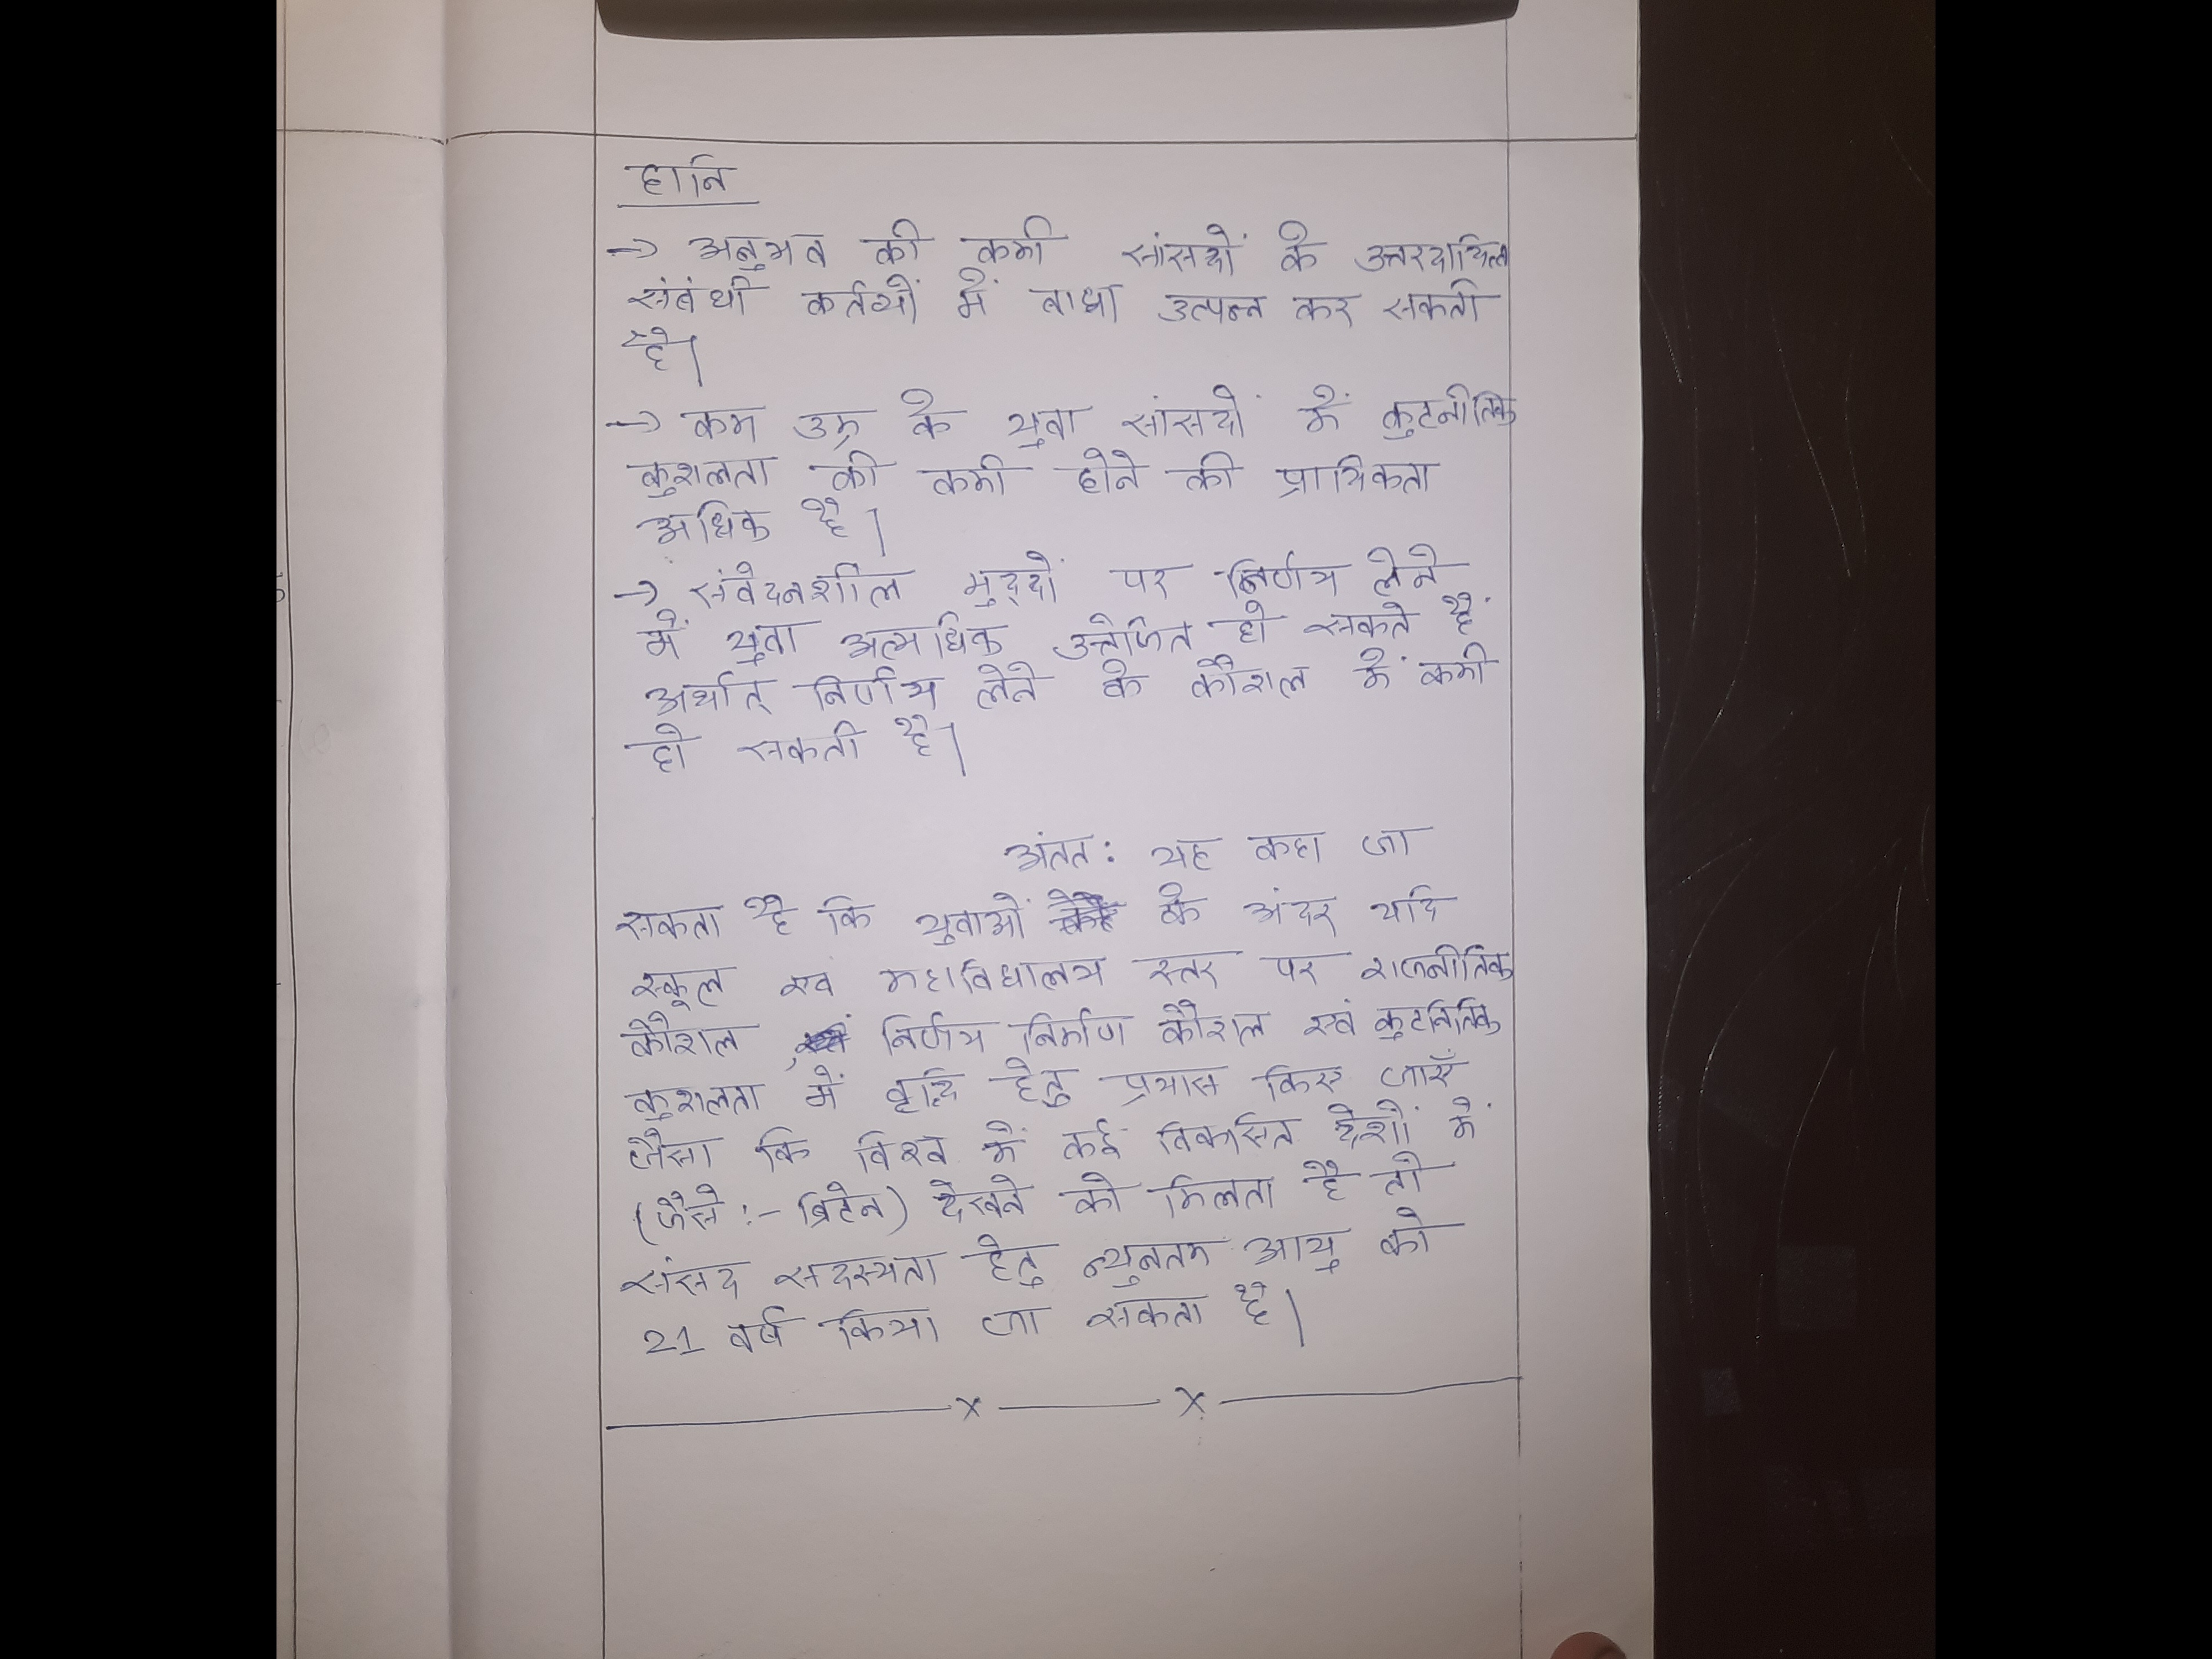 हानि
→ अनुभव की कमी सांसदों के उत्तरदायित्व
संबंधी कर्तव्यों में बाधा उत्पन्न कर सकती
है।
→ कम उम्र के युवा सांसदों में कुटनीतिक
कुशलता की कमी होने की प्रायिकता
अधिक है।
→ संवेदनशील मुद्दों पर निर्णय लेने
में युवा अत्यधिक उत्तेजित हो सकते हैं
अर्थात् निर्णय लेने के कौशल में कमी
हो सकती है।
अंतत: यह कहा जा
सकता है कि युवाओं के अंदर यदि
स्कूल एवं महाविद्यालय स्तर पर राजनीतिक
कौशल, निर्णय निर्माण कौशल एवं कुटनितिक
कुशलता में वृद्धि हेतु प्रयास किए जाएँ
जैसा कि विश्व में कई विकसित देशों में
(जैसे :- ब्रिटेन) देखने को मिलता है तो
संसद सदस्यता हेतु न्युनतम आयु को
21 वर्ष किया जा सकता है।
x x